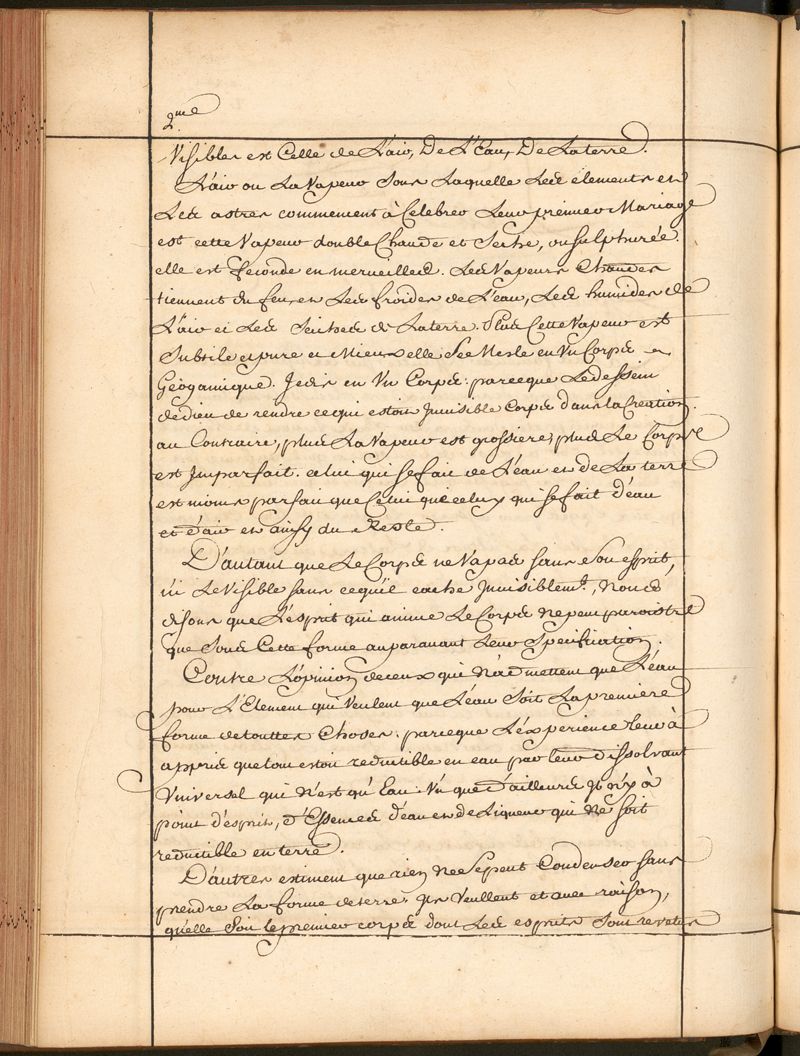 2.me
Visibles est Celle de L'air, De L'Eau, De La terre.
L'air ou La Vapeur Sous Laquelle Les élements et
Les astres commencent à Celebrer Leur premier Mariage
est cette Vapeur double Chaude et Seche, ou sulphurée.
elle est feconde en merveilles. Les Vapeurs Chaudes
tiennent du feu, et Les froides de L'eau, Les humides de
L'air et Les Seiches de La terre. Plus Cette Vapeur est
Subtile et pure et Mieux elle Se Mesle en Un Corps
Géogamique. Je dis en Un Corps: parceque Le dessein
de dieu de rendre ce qui estoit Invisible Corps dans la Creation.
au Contraire, plus La Vapeur est grossiere, plus Le Corps
est Imparfait. celui qui se fait de L'eau et de La terre
est moins parfait que Celui que celuy qui se fait d'eau
et d'air et ainsy du Reste.
D'autant que Le Corps ne Va pas sans Son esprit,
ni Le Visible sans ce qu'il cache Invisiblemt, Nous
disons que L'esprit qui anime Le Corps ne peut paroistre
que Sous Cette forme auparavant Leur Specification.
Contre L'opinion de ceux qui N'admettent que L'eau
pour L'Element qui Veulent que L'eau Soit La premiere
forme de touttes Choses. parceque L'experience leur à
appris que tout estoit reductible en eau par leur dissolvant
Universel qui n'est qu'Eau. Vu que d'ailleurs Il n'y à
point d'esprit, d'Essences d'eau et de Liqueur qui Ne soit
reductible en terre.
D'autres estiment que rien Ne Se peut Condenser sans
prendre La forme de terre, Ils Veullent et avec raison,
qu'elle Soit le premier corps dont Les esprits Sont revetus